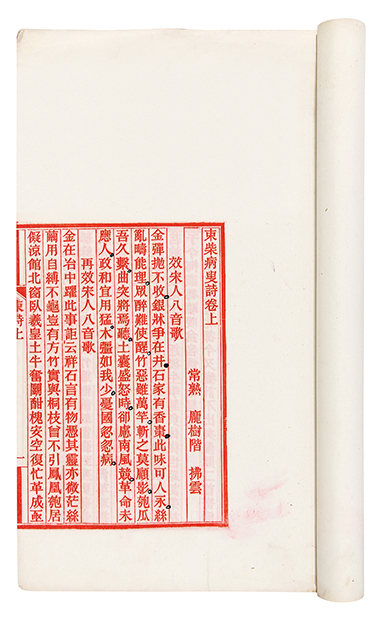 東柴病叟詩卷上
常熟 龐樹階 拂雲
效宋人八音歌
金彈拋不收銀牀爭在井石家有香棗此味可人永絲
亂疇能理眾醉難使醒竹惡雖萬竿斬之莫顧影匏瓜
吾久繫曲突將焉聽土囊盛怒時卻慮南風競革命未
應人政和宜用猛木彊如我少憂國怱怱病
再效宋人八音歌
金在冶中躍此事詎云祥石言有物憑其靈亦微茫絲
繭用自縛不龜豈有方竹實與桐枝曾不引鳳凰匏居
儗涼館北窗臥羲皇土牛奮鬭酣槐安空復忙革成亟
詩上 一